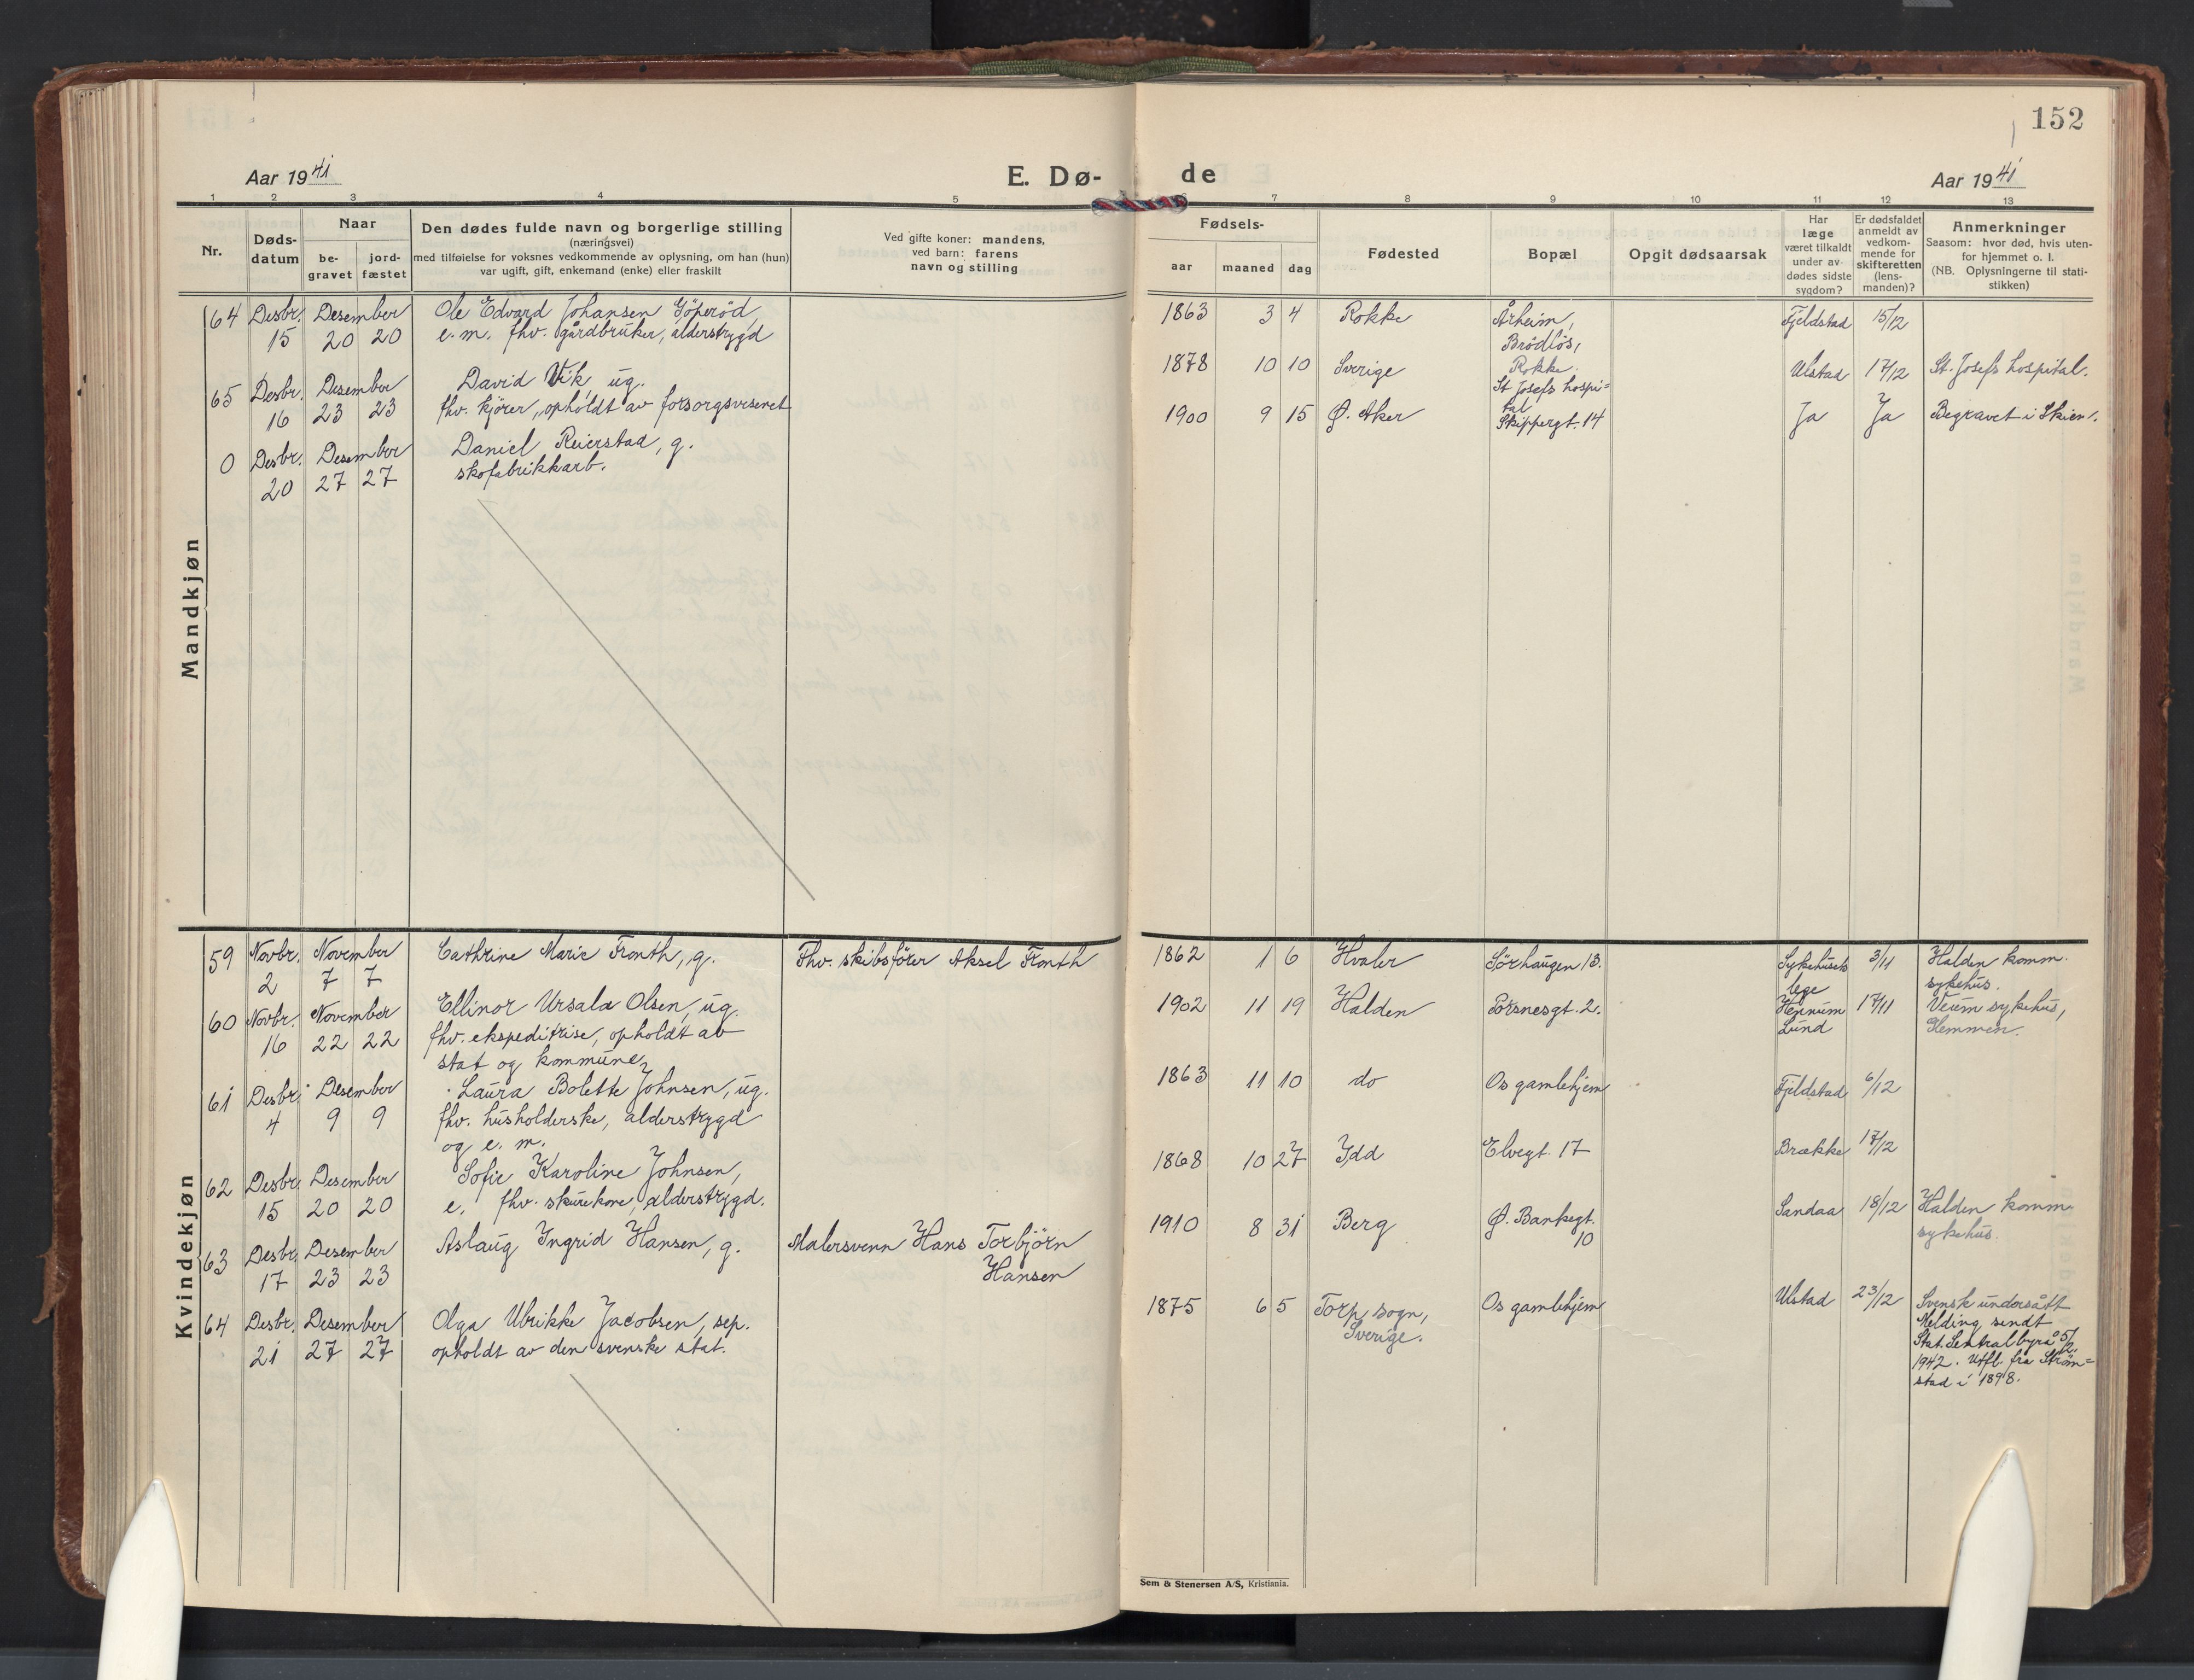 152
Aar 1941
E. Dø-
de
Aar 1941
1 2 3 4 5 6 7 8 9 10 11 12 13
Nr.
Døds-
datum
Naar
be-
gravet
jord-
fæstet
Den dødes fulde navn og borgerlige stilling
(næringsvei)
med tilføielse for voksnes vedkommende av oplysning, om han (hun)
var ugift, gift, enkemand (enke) eller fraskilt
Ved gifte koner: mandens,
ved barn: farens
navn og stilling
Fødsels-
aar maaned dag
Fødested
Bopæl
Opgit dødsaarsak
Har
læge
været tilkaldt
under av-
dødes sidste
sygdom?
Er dødsfaldet
anmeldt av
vedkom-
mende for
skifteretten
(lens-
manden)?
Anmerkninger
Saasom: hvor død, hvis uten-
for hjemmet o. l.
(NB. Oplysningerne til stati-
stikken)
Mandkjøn
64 Desbr. Desember Ole Edvard Johansen Göperöd,
15 20 20 e. m. fhv. gårdbruker, alderstrygd
1863 3 4 Rokke Årheim, Fjeldstad 15/12
Brödlös,
Rokke.
65 Desbr. Desember David Vik, ug.
16 23 23 fhv. kjörer, opholdt av forsorgsvesenet
1878 10 10 Sverige St. Josefs hospi= Ulstad 17/12 St. Josefs hospital.
tal
0 Desbr. Desember Daniel Reierstad, g.
20 27 27 skofabrikkarb.
1900 9 15 Ø. Aker Skippergt. 14 Ja Ja Begravet i Skien.
Kvindekjøn
59 Novbr. November Cathrine Marie Fronth, g. Fhv. skibsförer Aksel Fronth
2 7 7
1862 1 6 Hvaler Sörhaugen 13. Sykehusets 3/11 Halden komm.
lege sykehus.
60 Novbr. November Ellinor Ursala Olsen, ug.
16 22 22 fhv. ekspeditrise, opholdt av
stat og kommune
1902 11 19 Halden Porsnesgt. 2. Hennum 17/11 Veum sykehus,
Lund Glemmen.
61 Desbr. Desember Laura Bolette Johnsen, ug.
4 9 9 fhv. husholderske, alderstrygd
og e. m.
1863 11 10 do Os gamlehjem Fjeldstad 6/12
62 Desbr. Desember Sofie Karoline Johnsen,
15 20 20 e. fhv. skurekone, alderstrygd.
1868 10 27 Idd Elvegt. 17 Brække 17/12
63 Desbr. Desember Aslaug Ingrid Hansen, g. Malersvenn Hans Torbjörn
17 23 23 Hansen
1910 8 31 Berg Ø. Bankegt. Sandaa 18/12 Halden komm.
10 sykehus.
64 Desbr. Desember Olga Ulrikke Jacobsen, sep.
21 27 27 opholdt av den svenske stat.
1875 6 5 Torp sogn, Os gamlehjem Ulstad 23/12 Svensk undersått
Sverige. Melding sendt
Stat. Sentralbyrå 5/2
1942. Utfl. fra Ström=
stad i 1898.
Sem & Stenersen A/S, Kristiania.